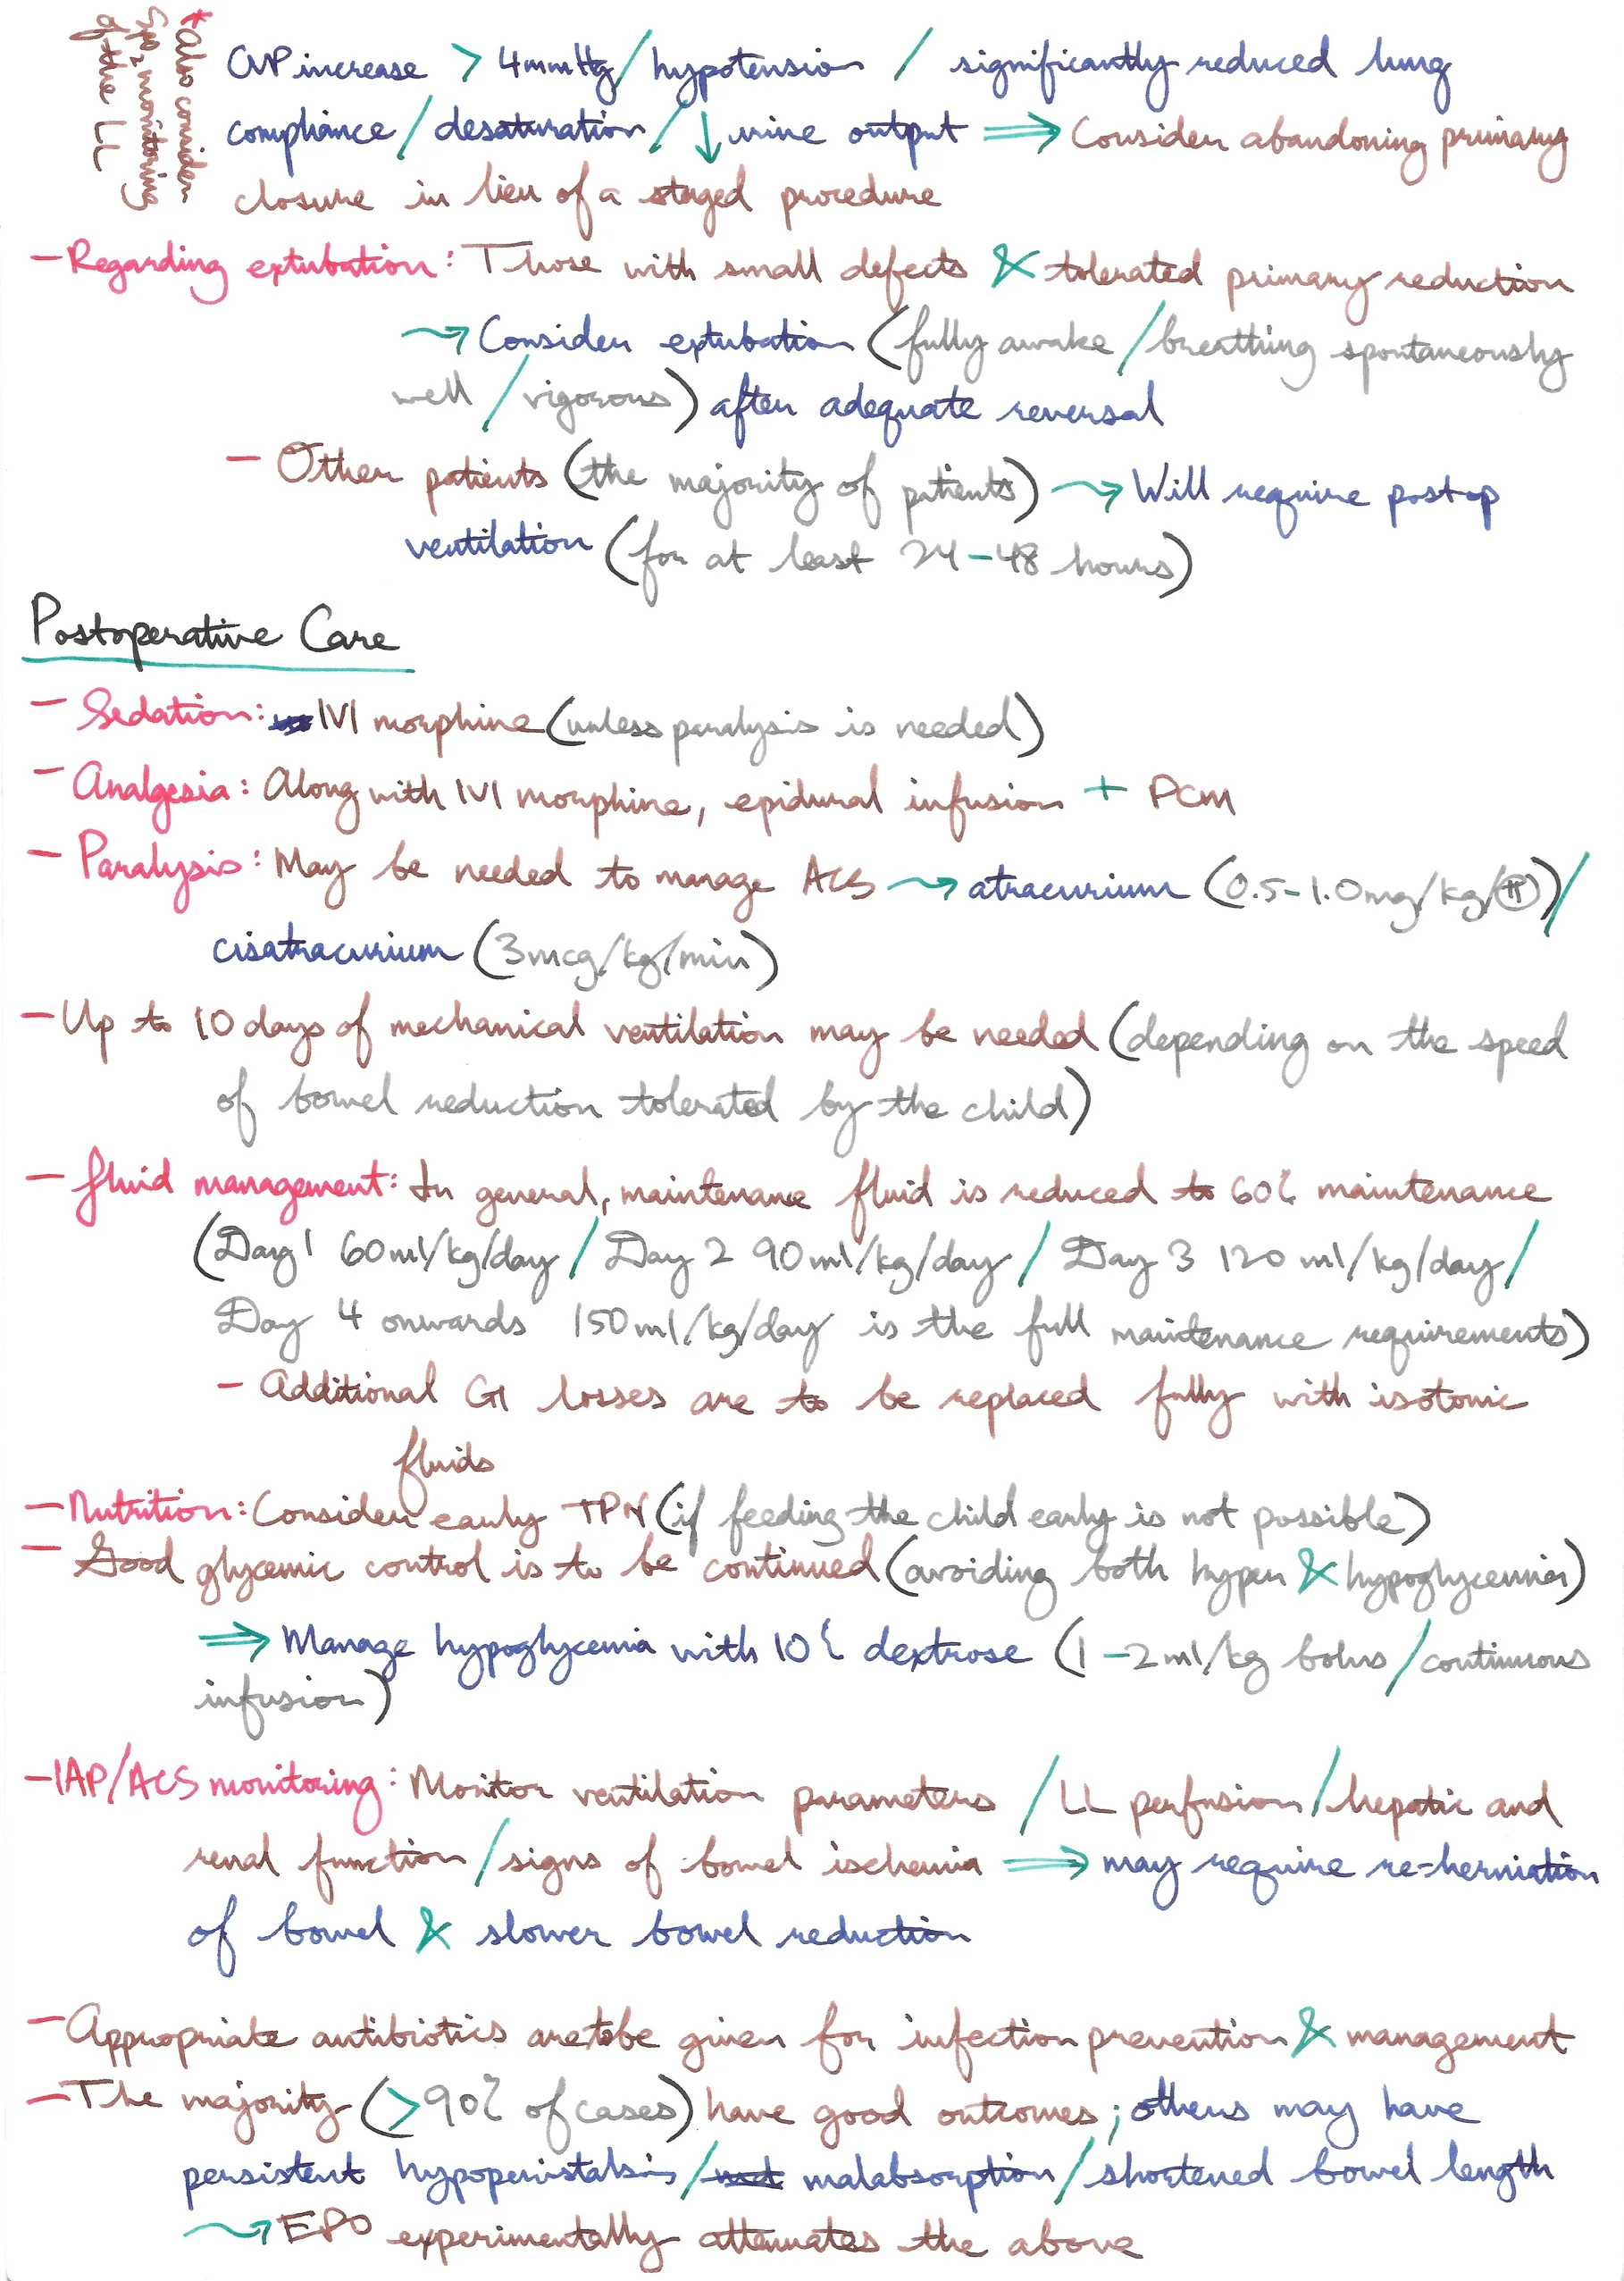 * Also consider
SpO₂ monitoring
of the LL
CVP increase > 4mmHg / hypotension / significantly reduced lung
compliance / desaturation / ↓ urine output ⇒ Consider abandoning primary
closure in lieu of a staged procedure
- Regarding extubation: Those with small defects & tolerated primary reduction
⇝ Consider extubation (fully awake / breathing spontaneously
well / vigorous) after adequate reversal
- Other patients (the majority of patients) ⇝ Will require postop
ventilation (for at least 24-48 hours)
Postoperative Care
- Sedation: IVI morphine (unless paralysis is needed)
- Analgesia: Along with IVI morphine, epidural infusion + PCM
- Paralysis: May be needed to manage ACS ⇝ atracurium (0.5-1.0mg/kg/Ⓗ) /
cisatracurium (3mcg/kg/min)
- Up to 10 days of mechanical ventilation may be needed (depending on the speed
of bowel reduction tolerated by the child)
- Fluid management: In general, maintenance fluid is reduced to 60% maintenance
(Day 1 60ml/kg/day / Day 2 90ml/kg/day / Day 3 120 ml/kg/day /
Day 4 onwards 150ml/kg/day is the full maintenance requirements)
- Additional GI losses are to be replaced fully with isotonic
fluids
- Nutrition: Consider early TPN (if feeding the child early is not possible)
- Good glycemic control is to be continued (avoiding both hyper & hypoglycemia)
⇒ Manage hypoglycemia with 10% dextrose (1-2ml/kg bolus / continuous
infusion)
- IAP/ACS monitoring: Monitor ventilation parameters / LL perfusion / hepatic and
renal function / signs of bowel ischemia ⇒ may require re-herniation
of bowel & slower bowel reduction
- Appropriate antibiotics are to be given for infection prevention & management
- The majority (>90% of cases) have good outcomes; others may have
persistent hypoperistalsis / malabsorption / shortened bowel length
⇝ EPO experimentally attenuates the above